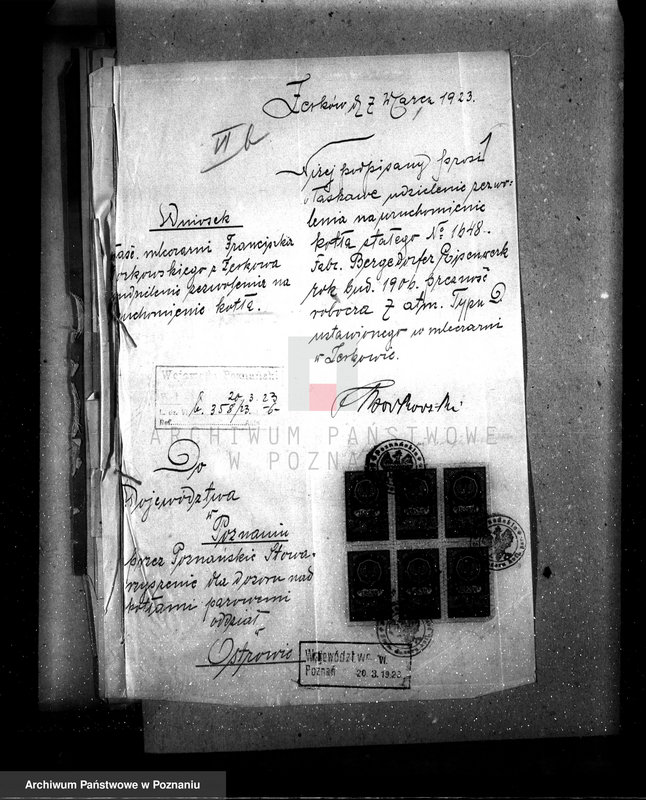 Żerków d. 7 Marca 1923.
VI b
Niżej podpisany prosi
o łaskawe udzielenie pezwo-
lenia na uruchomienie
kotła stałego No 1648.
Fabr. Bergedorfer Eisenwerk
rok bud. 1906. prężność
robocza 7 atm. Typu D
ustawionego w mleczarni
w Żerkowie.
Wniosek
właść. mleczarni Franciszka
z Żerkowa
o udzielenie pezwolenia na
uruchomienie kotła.
Wojewoda Poznański
20.3.23
L. dz. 358/23
Ref.
ARCHIWUM PAŃSTWOWE
W POZNANIU
Do
Województwa
w
Poznaniu
przez Poznańskie Stowa-
rzyszenie dla dozoru nad
kotłami parowemi
oddział
w
Ostrowie
Województwo w.
Poznań 20.3.1923
Archiwum Państwowe w Poznaniu